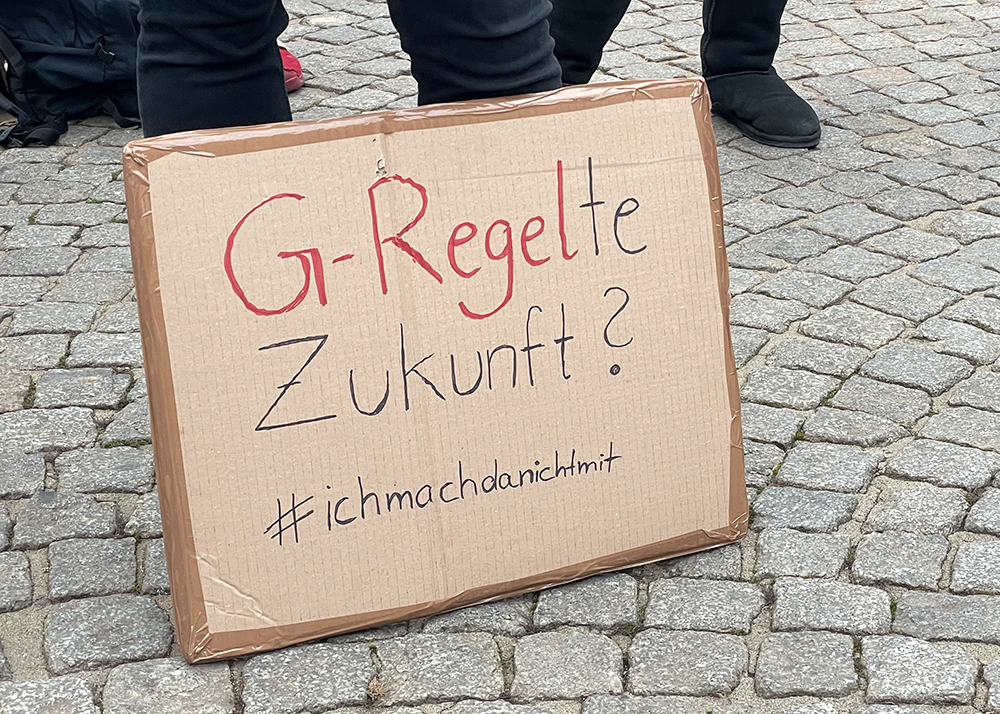 G-Regelte
Zukunft?
#ichmachdanichtmit